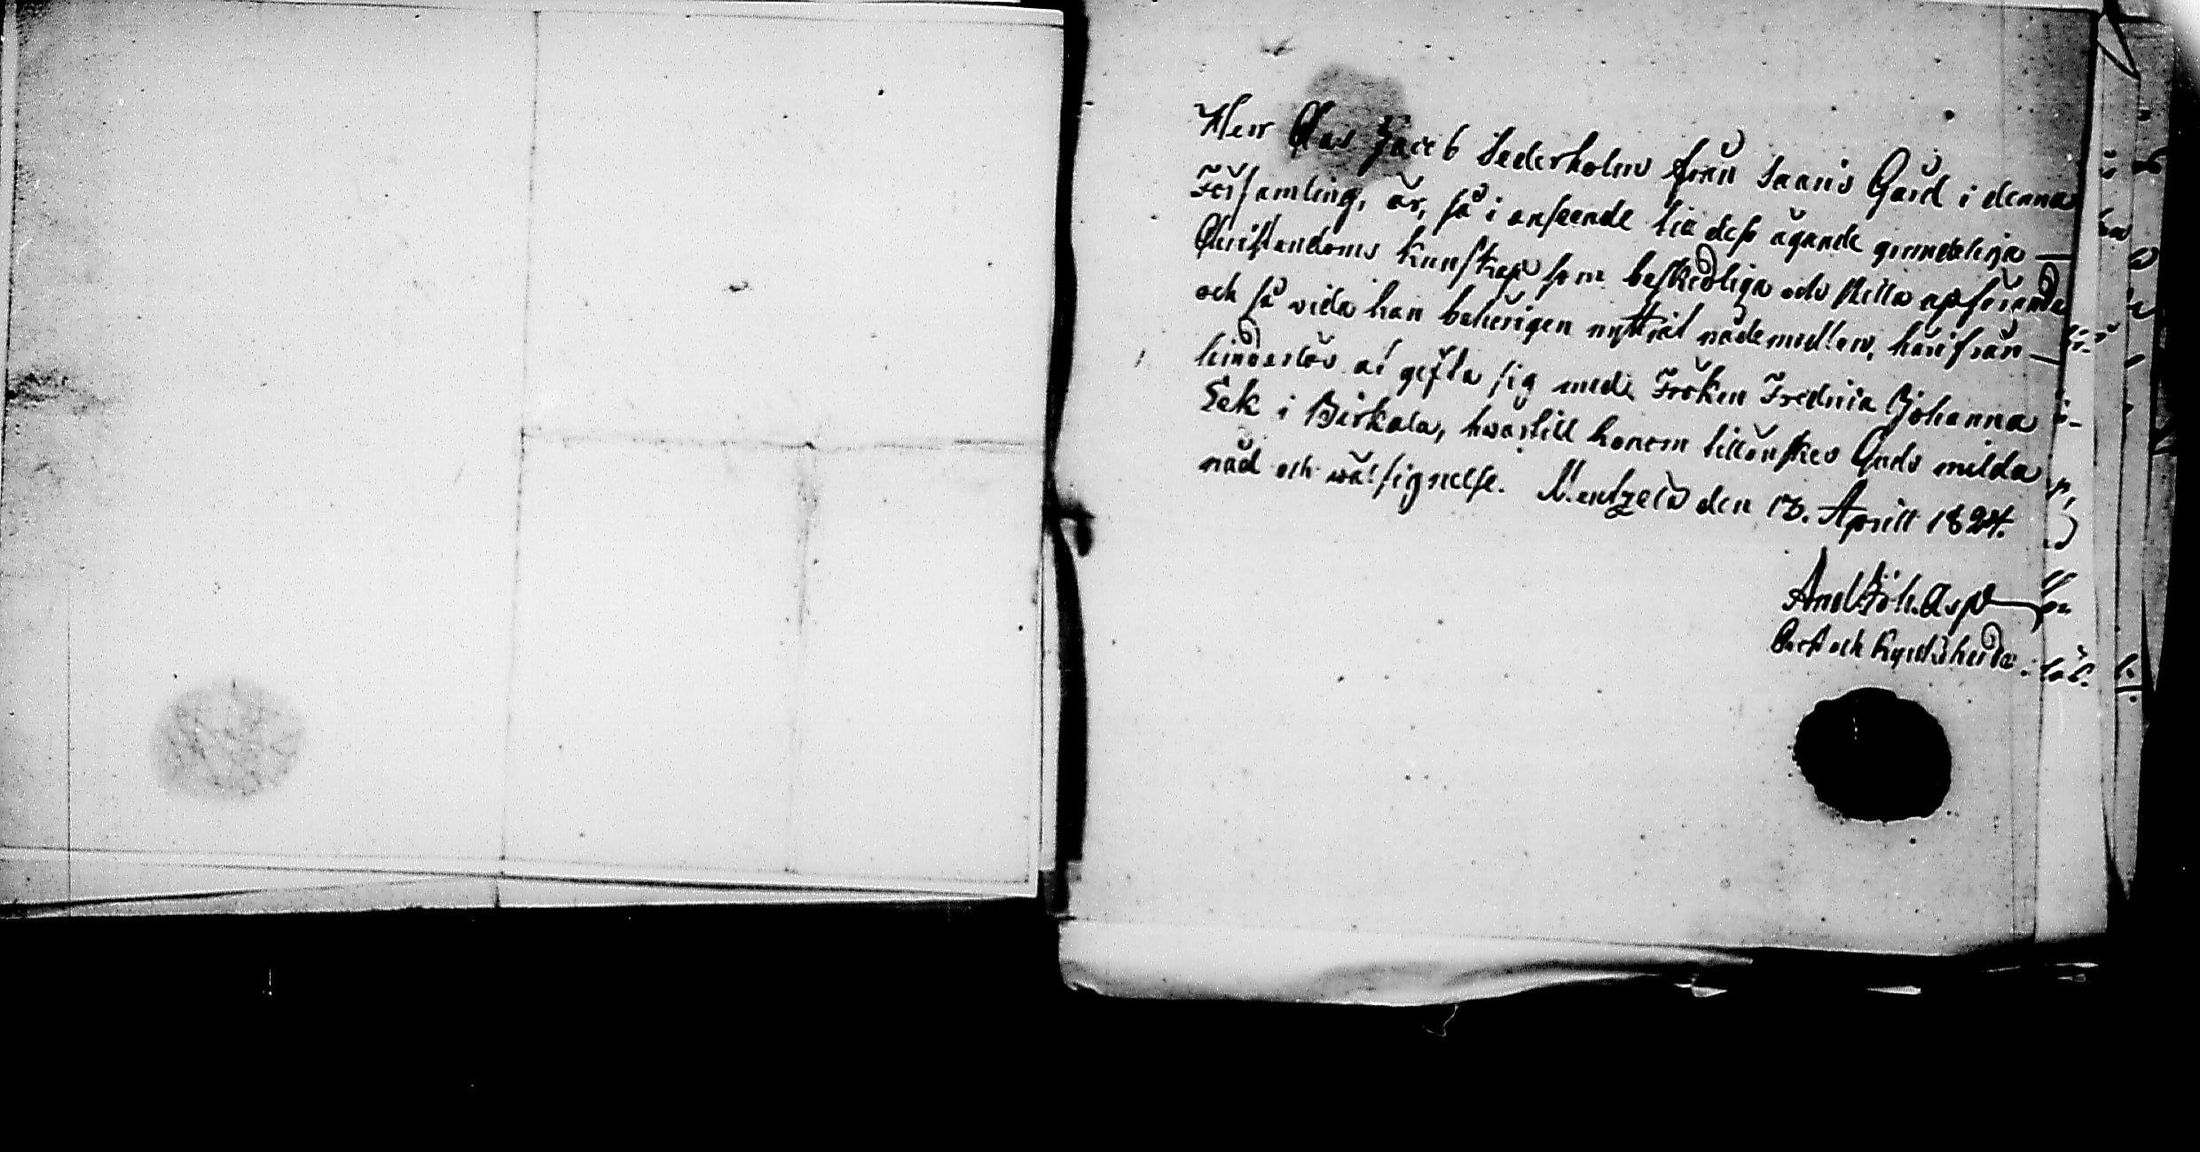 Herr Clas Jacob Sederholm från Saaris Gård i denna
Församling, är, så i anseende till dess ägande grundeliga
Christendoms kunskap som beskedliga och stilla upförande
och så vida han behörigen nyttjat nådemedlen, härifrån
hinderlös at gifta sig med Fröken Fredrica Johanna
Eek i Birkala, hwartill honom tillönskes Guds milda
nåd och wälsignelse. den 18. Aprill 1824.
And. Joh. Asp
och Kyrckoherde.